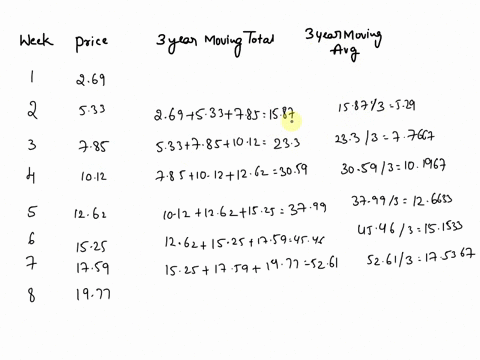 Week Price 3 year Moving Total 3 year Moving Avg
1 2.69
2 5.33 2.69+5.33+7.85=15.87 15.87/3=5.29
3 7.85 5.33+7.85+10.12=23.3 23.3/3=7.7667
4 10.12 7.85+10.12+12.62=30.59 30.59/3=10.1967
5 12.62 10.12+12.62+15.25=37.99 37.99/3=12.6633
6 15.25 12.62+15.25+17.59=45.46 45.46/3=15.1533
7 17.59 15.25+17.59+19.77=52.61 52.61/3=17.5367
8 19.77